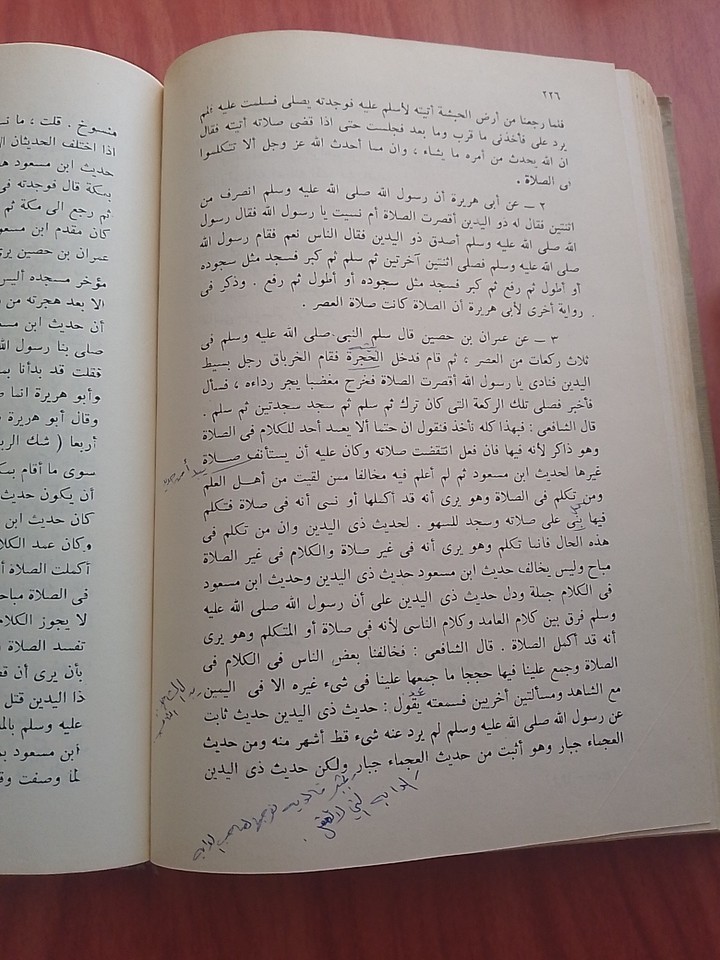 ٢٢٦
فلما رجعنا من أرض الحبشة أتيته لأسلم عليه فوجدته يصلى فسلمت عليه فلم
يرد على فأخذنى ما قرب وما بعد فجلست حتى اذا قضى صلاته أتيته فقال
ان الله يحدث من أمره ما يشاء ، وان مما أحدث الله عز وجل ألا تتكلموا
فى الصلاة .
٢ — عن أبى هريرة أن رسول الله صلى الله عليه وسلم انصرف من
اثنتين فقال له ذو اليدين أقصرت الصلاة أم نسيت يا رسول الله فقال رسول
الله صلى الله عليه وسلم أصدق ذو اليدين فقال الناس نعم فقام رسول الله
صلى الله عليه وسلم فصلى اثنتين آخرتين ثم سلم ثم كبر فسجد مثل سجوده
أو أطول ثم رفع ثم كبر فسجد مثل سجوده أو أطول ثم رفع . وذكر فى
رواية أخرى لأبى هريرة أن الصلاة كانت صلاة العصر .
٣ — عن عمران بن حصين قال سلم النبى صلى الله عليه وسلم فى
ثلاث ركعات من العصر ، ثم قام فدخل الحجرة فقام الخرباق رجل بسيط
اليدين فنادى يا رسول الله أقصرت الصلاة فخرج مغضبا يجر رداءه ، فسأل
فأخبر فصلى تلك الركعة التى كان ترك ثم سلم ثم سجد سجدتين ثم سلم .
قال الشافعى : فبهذا كله نأخذ فنقول ان حتما ألا يعمد أحد للكلام فى الصلاة
وهو ذاكر لأنه فيها فان فعل انتقضت صلاته وكان عليه أن يستأنف صلاة
غيرها لحديث ابن مسعود ثم لم أعلم فيه مخالفا ممن لقيت من أهل العلم
ومن تكلم فى الصلاة وهو يرى أنه قد أكملها أو نسى أنه فى صلاة فتكلم
فيها بنى على صلاته وسجد للسهو . لحديث ذى اليدين وان من تكلم فى
هذه الحال فانما تكلم وهو يرى أنه فى غير صلاة والكلام فى غير الصلاة
مباح وليس يخالف حديث ابن مسعود حديث ذى اليدين وحديث ابن مسعود
فى الكلام جملة ودل حديث ذى اليدين على أن رسول الله صلى الله عليه
وسلم فرق بين كلام العامد وكلام الناسى لأنه فى صلاة أو المتكلم وهو يرى
أنه قد أكمل الصلاة . قال الشافعى : فخالفنا بعض الناس فى الكلام فى
الصلاة وجمع علينا فيها حججا ما جمعها علينا فى شىء غيره الا فى اليمين
مع الشاهد ومسألتين أخريين فسمعته يقول : حديث ذى اليدين حديث ثابت
عن رسول الله صلى الله عليه وسلم لم يرد عنه شىء قط أشهر منه ومن حديث
العجماء جبار وهو أثبت من حديث العجماء جبار ولكن حديث ذى اليدين
الدابة التى لا تعقل
منسوخ . قلت ،
اذا اختلف الحديثان
حديث ابن مسعود
بمكة قال فوجدته
ثم رجع الى مكة ثم
كان مقدم ابن
عمران بن حصين
مؤخر مسجده أليس
الا بعد هجرته من
أن حديث ابن
صلى بنا رسول
فقلت قد بدأنا
وأبو هريرة انما
وقال أبو هريرة
أربعا ( شك
سوى ما أقام
أن يكون حديث
كان حديث ابن
وكان عمد
أكملت الصلاة
فى الصلاة
لا يجوز الكلام
تفسد الصلاة
بأن يرى أن
ذا اليدين قتل
عليه وسلم
ابن مسعود
لما وصفت